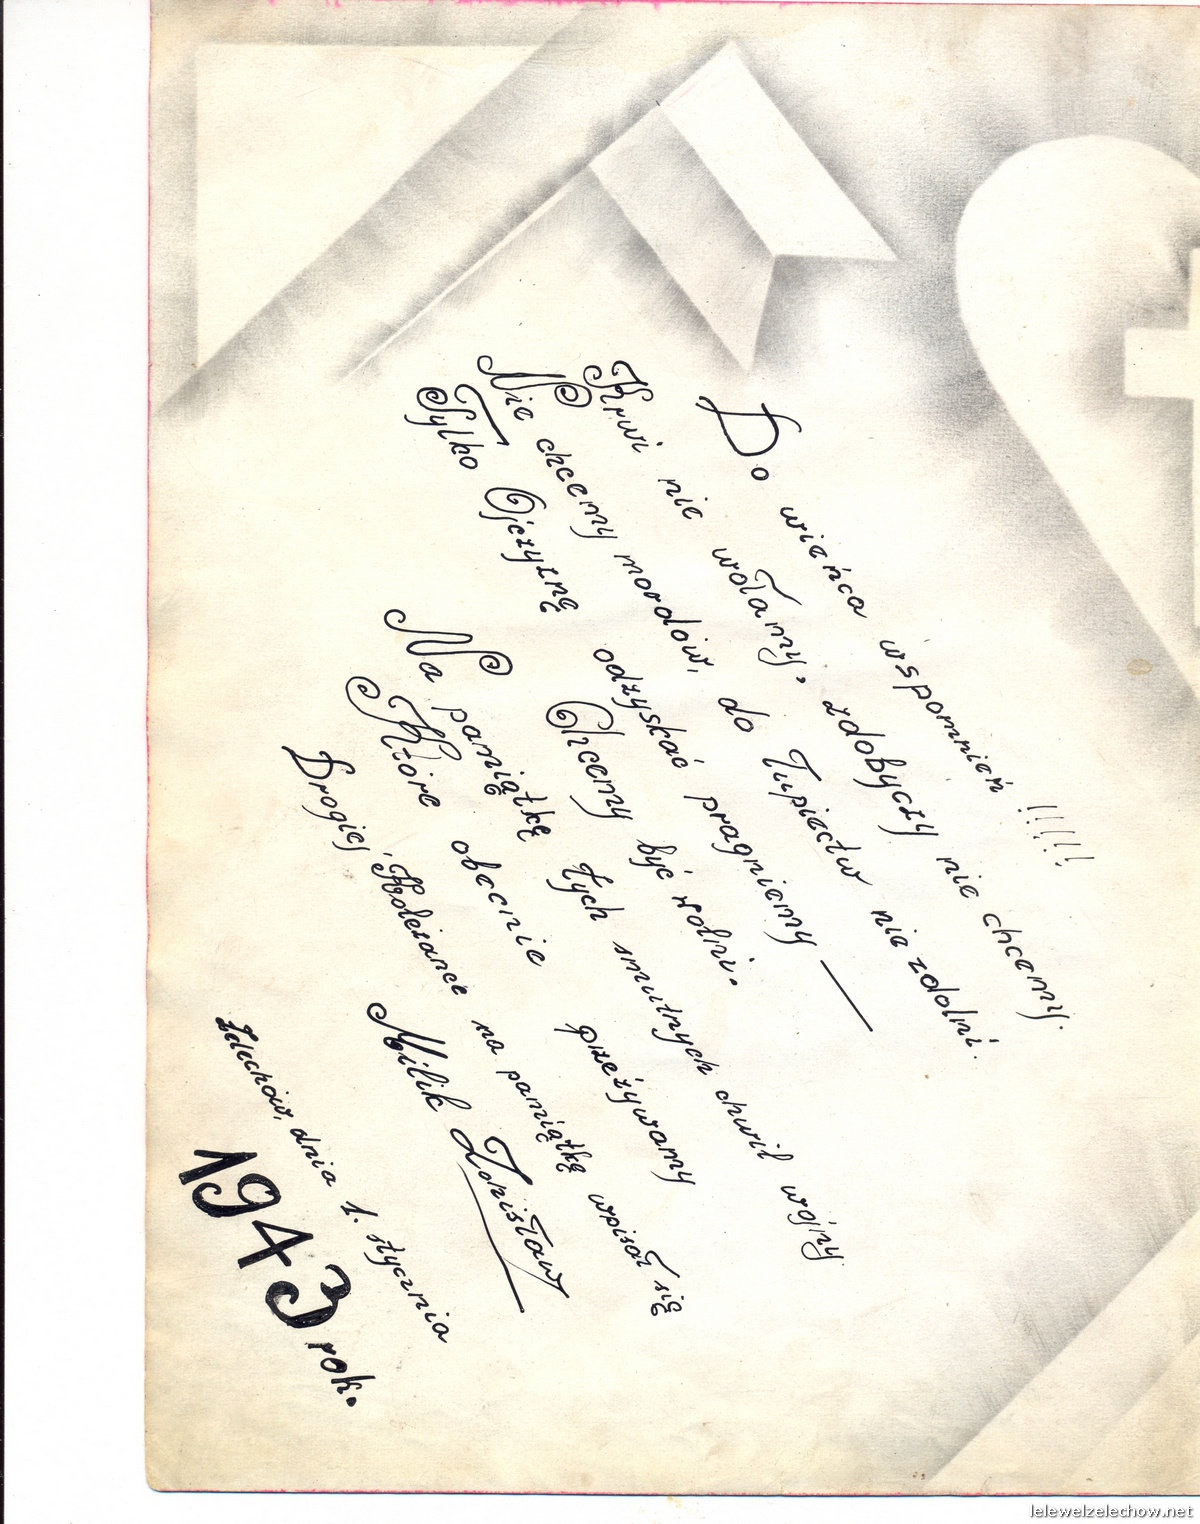 Do wieńca wspomnień !!!!!
Krwi nie wołamy, zdobyczy nie chcemy.
Nie chcemy mordów, do łupiectw nie zdolni.
Tylko Ojczyznę odzyskać pragniemy —
Chcemy być wolni.
Na pamiątkę tych smutnych chwil wojny
Które obecnie przeżywamy
Drogiej Koleżance na pamiątkę wpisał się
Milik Zdzisław
Żelechów, dnia 1. stycznia
1943 rok.
lelewelzelechow.net